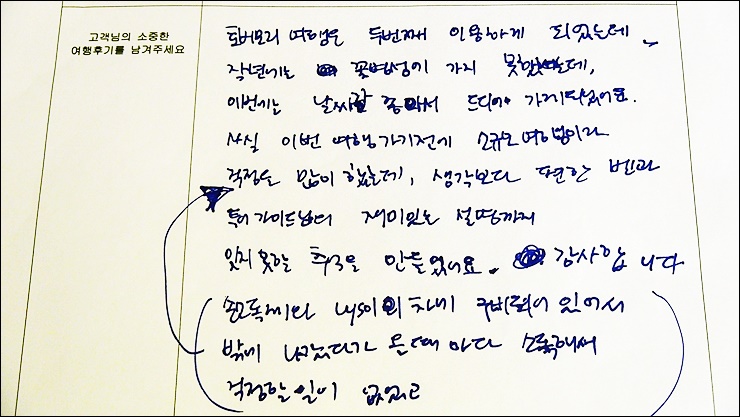 고객님의 소중한
여행후기를 남겨주세요
토버모리 여행은 두번째 이용하게 되었는데,
작년에는 꽃병섬에 가지 못했는데,
이번에는 날씨가 좋아서 드디어 가게되었어요.
사실 이번 여행가기전에 소규모여행이라
걱정을 많이 했는데, 생각보다 편한 벤과
투어가이드님의 재미있는 설명까지
잊지못할 추억을 만들었어요. 감사합니다
손독제와 차에 구비되어 있어서
밖에 나갔다가 올때마다 소독해서
걱정할일이 없었고